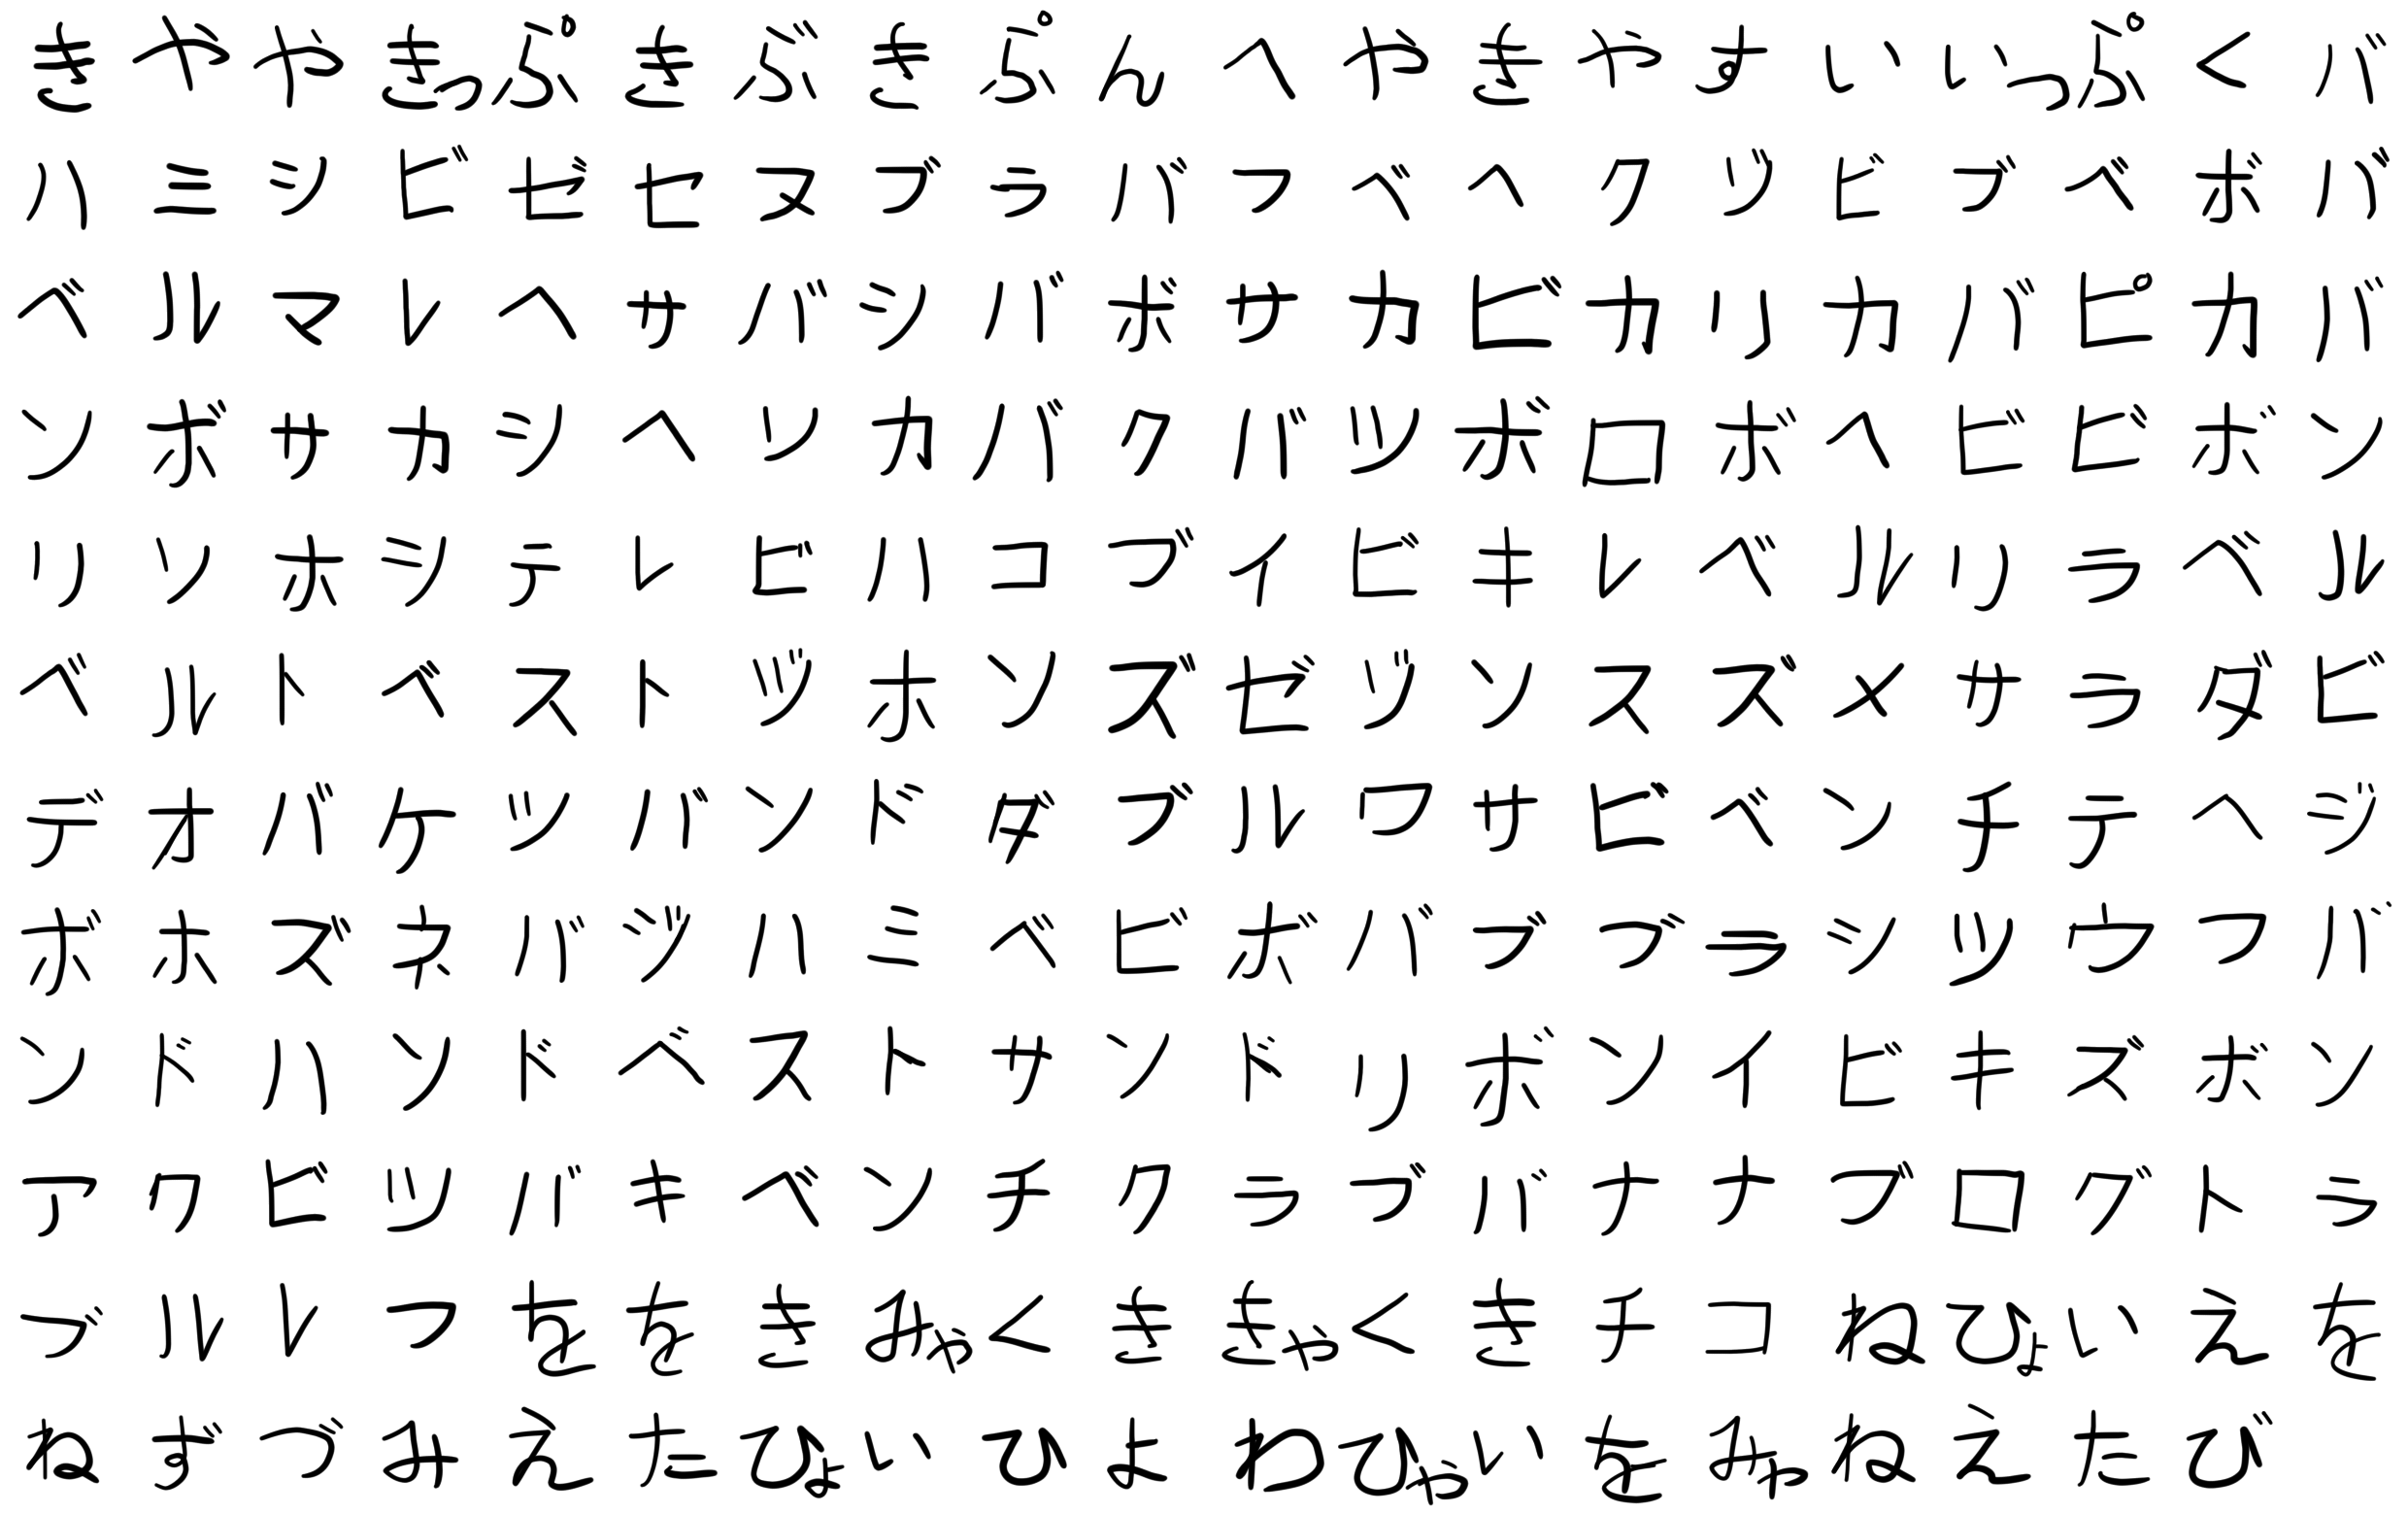 きややきっぷきぶきぷんへやきやすいいっぷくバ
ハミシビゼセヌブラバフベヘクヅビブベボバ
ベルマレヘサバシバボサカビカリカバピカバ
ンボサカシヘソカバクバツボロボヘビビボン
リンホシテレビハコブイビキレベルリラベル
ベルトベストヅホンズゼゾンスズメサラダビ
デオバケツバンドダブルワサビベンチテヘジ
ボホズネバジハミベビボバブブラシツウフバ
ンドハンドベストサンドリボンイビキズボン
アクビツバキベンチクラブバナナブログトラ
ブルレフををきみゃくききゃくきチコねひょいえを
ねずづみえたひょいひよわひゃいをみゃねえたび